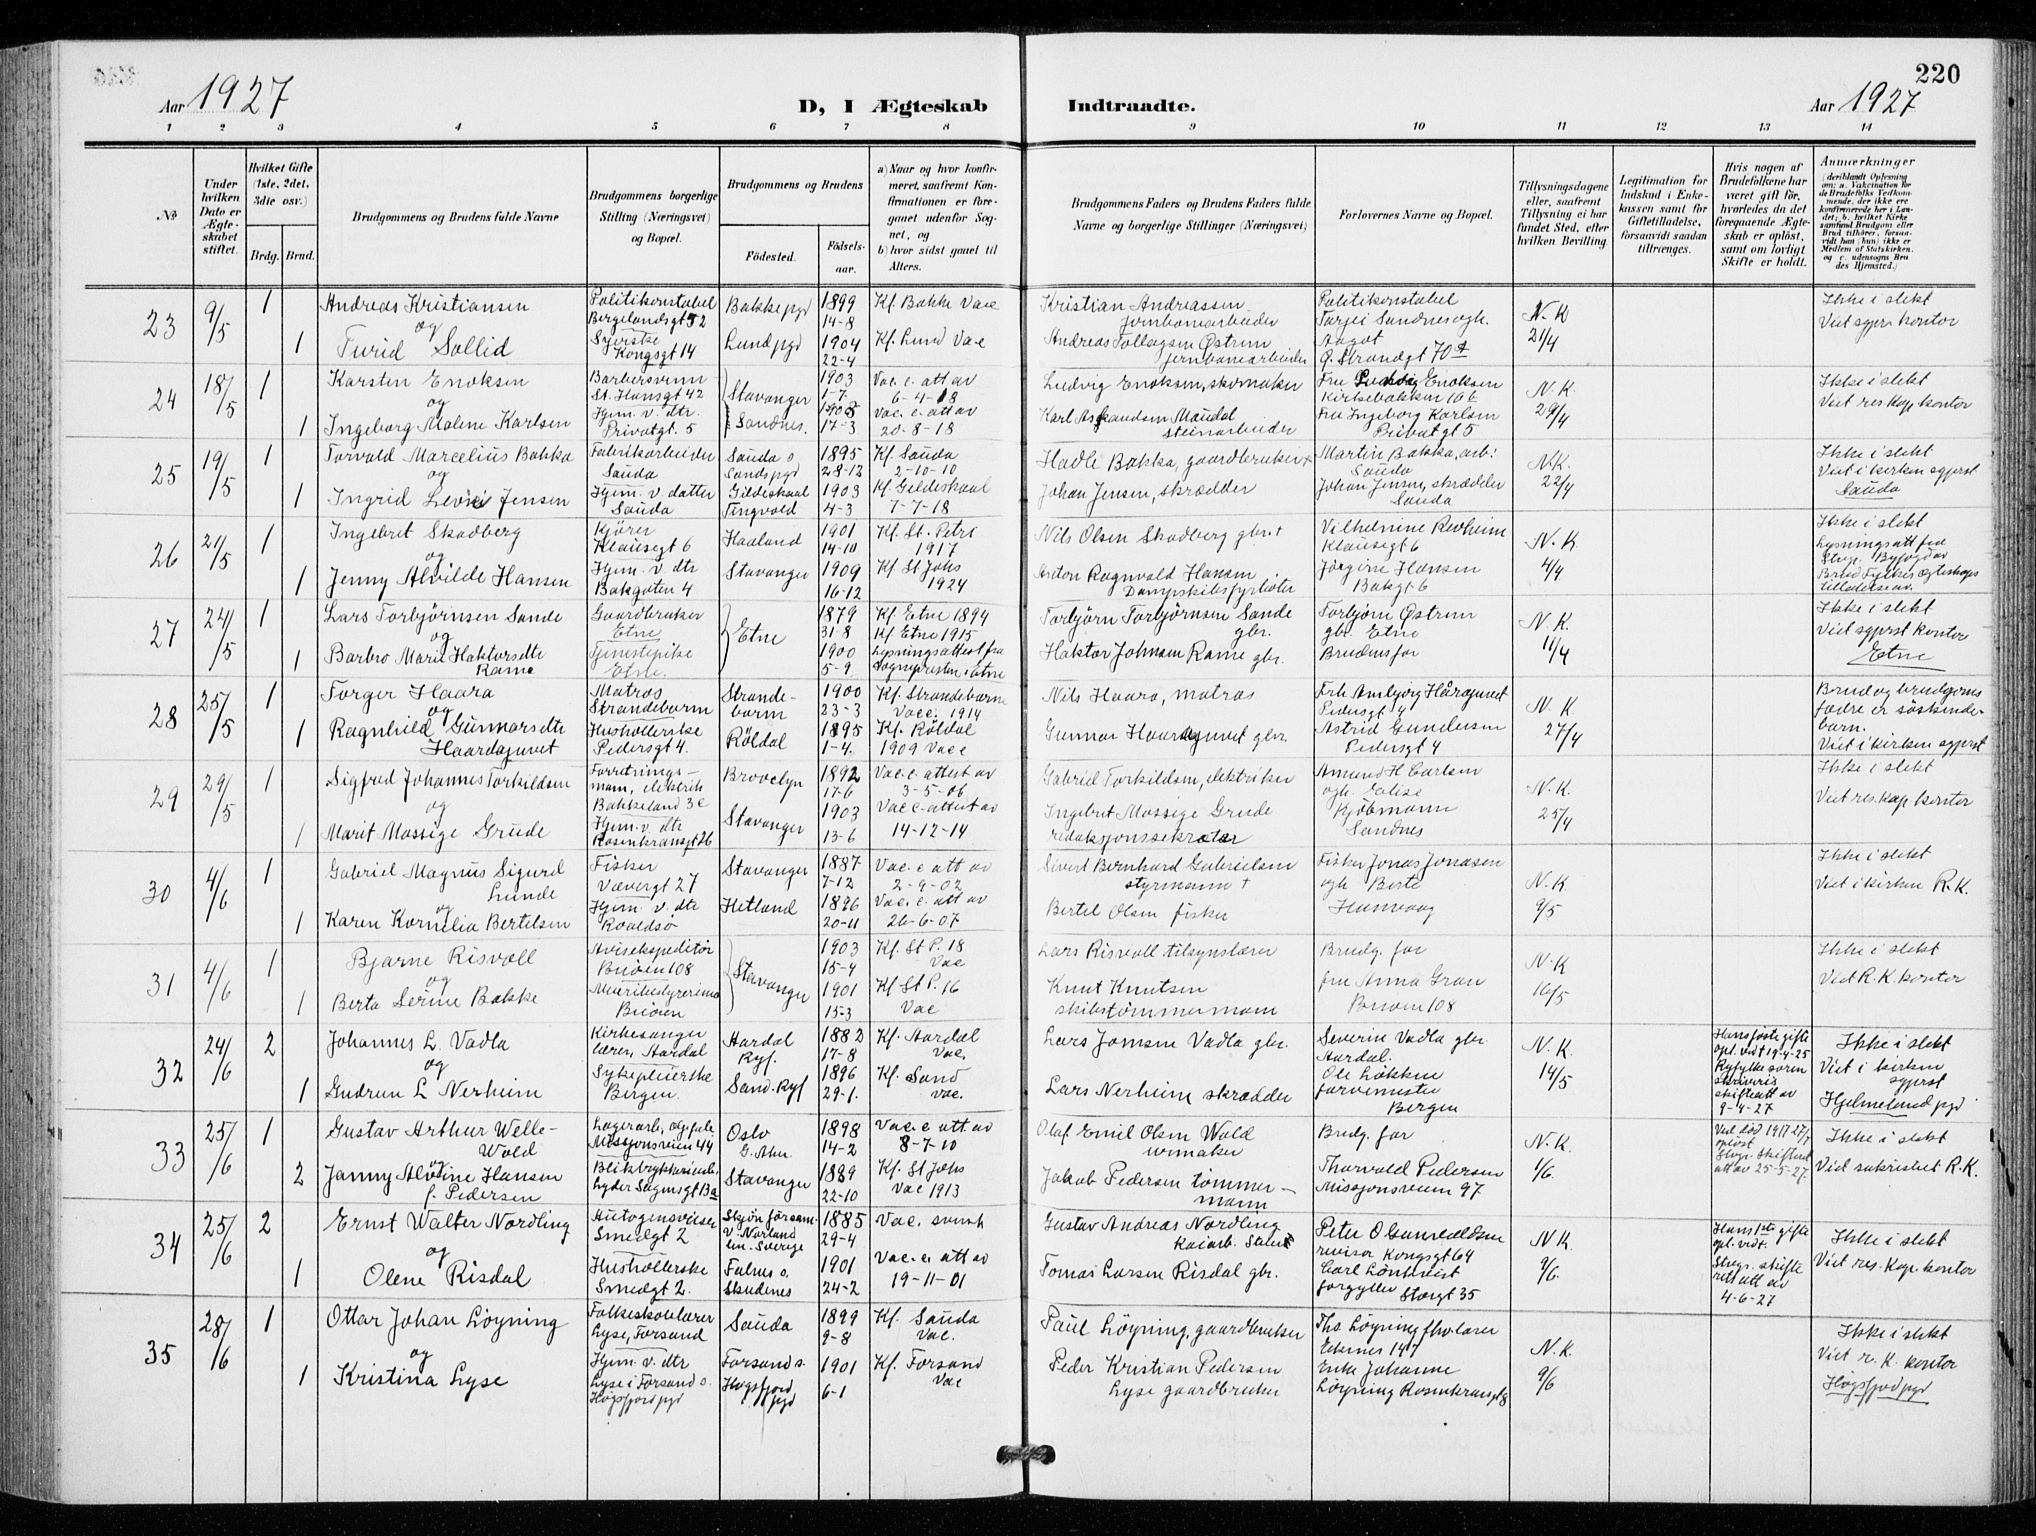 220
Aar 1927
D, I Ægteskab Indtraadte.
Aar 1927
1 2 3 4 5 6 7 8 9 10 11 12 13 14
№
Under hvilken Dato er Ægteskabet stiftet.
Hvilket Gifte (1ste, 2det, 3die osv.)
Brdg. Brud.
Brudgommens og Brudens fulde Navne
Brudgommens borgerlige Stilling (Næringsvei) og Bopæl.
Brudgommens og Brudens
Fødested. Fødselsaar.
a) Naar og hvor konfirmeret, saafremt Konfirmationen er foregaaet udenfor Sognet, og
b) hvor sidst gaaet til Alters.
Brudgommens Faders og Brudens Faders fulde Navne og borgerlige Stillinger (Næringsvei)
Forlovernes Navne og Bopæl.
Tillysningsdagene eller, saafremt Tillysning ei har fundet Sted, efter hvilken Bevilling.
Legitimation for Indskud i Enkekassen samt for Giftetilladelse, forsaavidt saadan tiltrænges.
Hvis nogen af Brudefolkene har været gift før, hvorledes da det foregaaende Ægteskab er opløst, samt om lovligt Skifte er holdt.
Anmærkninger
23 9/5 1 Andreas Kristiansen Politikonstabel Bergelandsgt 52 Bakke pgd 1899 14-8 Kf. Bakke Vac
Kristian Andreassen jernbanearbeider Politikonstabel N.K 21/4 Ikke i slekt
og
1 Turid Sollid Syerske Kongsgt 14 Lund pgd 1904 22-4 Kf. Lund Vac
Andreas Østrem jernbanearbeider Aagot Ø. Strandgt 70 Viet kontor
24 18/5 1 Karsten Enoksen St. Hansgt 42 Stavanger 1903 1-7 Vac. e. att av 6-4-18
Ludvig Enoksen, skomaker Fru Enoksen Kirkebakken 166 N.K. 29/4 Ikke i slekt
og
1 Ingeborg Malene Karlsen Hjem. v. dtr. Privatgt. 5 Sandnes. 17-3 Vac. e. att av 20-8-18
Maudal steinarbeider Fru Ingeborg Karlsen Privatgt 5 Viet res. kap kontor
25 19/5 1 Torvald Marcelius Bakka Fabrikarbeider Sauda Sauda s. Sands pgd 1895 28-12 Kf Sauda 2-10-10
Bakka, gaardbruker + Martin Bakka, arb: Sauda N.K. 22/4 Ikke i slekt
og
1 Ingrid Jensen Hjem. v. datter Sauda Gildeskaal 1903 4-3 Kf Gildeskaal 7-7-18
Johan Jensen, skrædder Johan Jensen, skrædder Sauda Viet i kirken sgprst Sauda
26 21/5 1 Ingebret Skadberg Kjører Klausegt 6 Haaland 1901 14-10 Kf. St. Petri 1917
Nils Olsen Skadberg gbr. + Vilhelmine Revheim Klausegt 6 N.K. 4/4 Ikke i slekt
og
1 Jenny Alvilde Hansen Hjem. v. dtr Bakgaten 4 Stavanger 1909 16-12 Kf St Johs 1924
Anton Ragnvald Hansen Dampskibsfyrbøter Jørgine Hansen Bakgt 6 Lysningsatt fra
27 24/5 1 Lars Torbjørnsen Sande Gaardbruker Etne Etne 1879 31-8 Kf. Etne 1894
Torbjørn Torbjørnsen Sande gbr. Torbjørn Østrem gbr. Etne N.K. 11/4 Ikke i slekt
og
1 Barbro Marie Haktorsdtr Rame Tjenestepike Etne. 1900 5-9 Kf Etne 1915 Lysningsattest fra sognepresten i Etne
Haktor Johnsen Rame gbr. Brudens far Viet sgprst kontor Etne
28 25/5 1 Torger Haara Matros Strandebarm Strandebarm 1900 23-3 Kf. Strandebarm Vacc. 1914
Nils Haara, matros Pedersgt 4 N.K 27/4 Brud og brudgoms fædre er søskendebarn.
og
1 Ragnhild Gunnarsdtr Haardajuvet Husholderske Pedersgt 4. Røldal 1895 1-4. Kf. Røldal 1909 Vacc
Gunnar gbr. Astrid Gundersen Pedersgt 4 Viet i kirken sgprst
29 29/5 1 Sigfred Johannes Torkildsen Forretningsmann, elektrik Bakkeland 3c Brooclyn 1892 17-6 Vac. e. attest av 3-5-06
Gabriel Torkildsen, elektriker Amund H Carlsen N.K. 25/4 Ikke i slekt
og
1 Marit Mossige Grude Hjem. v. dtr Rosenkransgt 26 Stavanger 1903 13-6 Vac e. attest av 14-12-14
Ingebret Mossige Grude redaksjonssekretær kjøbmann Sandnes Viet res. kap kontor
30 4/6 1 Gabriel Magnus Sigurd Lunde Fisker Vævergt 27 Stavanger 1887 7-12 Vac. e att av 2-9-02
Sivert Bernhard Gabrielsen styrmann + Fisker Jonas Jonasen N.K. 9/5 Ikke i slekt
og
1 Karen Kornelia Bertelsen Hjem. v. dtr Hetland 1896 20-11 Vac. e. att av 26-6-07
Bertel Olsen fisker Berte Viet i kirken R.K.
31 4/6 1 Bjarne Risvoll Avisekspeditør Buøen 108 Stavanger 1903 15-4 Kf. St P. 18 Vac
Lars Risvoll tilsynslærer Brudg. far N.K 16/5 Ikke i slekt
og
1 Berta Serine Bakke Buøen 1901 15-3 Kf St P. 16 Vac
Knut Knutsen skibstømmermann fru Anna Gran Buøen 108 Viet R.K. kontor
32 24/6 2 Johannes L. Vadla Kirkesanger lærer, Aardal Aardal Ryf. 1882 17-8 Kf. Aardal Vac.
Lars Jonsen Vadla gbr. Severin Vadla gbr Aardal. N.K. 14/5 Hans første gifte opl. ved 19-4-25 Ryfylke soren skriveris skifteatt av 9-4-27 Ikke i slekt
og
1 Gudrun L Nerheim Sykepleierske Bergen. Sand. Ryf 1896 29-1. Kf. Sand vac.
Lars Nerheim skrædder Ole Løkken farvemester Bergen Viet i kirken sgprst Hjelmeland pgd
33 25/6 1 Gustav Arthur Welle-Wold Missjonsveien 44 Oslo G. Aker. 1898 14-2 Vac. e att av 8-7-10
Olaf Emil Olsen Wold urmaker Brudg. far N.K. 1/6. Ved død 1917 27/7 opløst att av 25-5-27. Ikke i slekt
og
2 Janny Hansen f. Pedersen Lyder Sagensgt 13a Stavanger 1889 22-10 Kf. St Johs Vac 1913
Jakob Pedersen tømmermann Thorvald Pedersen Missjonsveien 97 Viet sakristiet R.K.
34 25/6 2 Ernst Walter Nordling Autogensveiser Smedgt 2 Sverige 1885 29-4 Vac. svensk
Gustav Andreas Nordling revisor Kongsgt 64 N.K. 9/6. Hans 1ste gifte opl. ved. Stvgr. skifterett att av 4-6-27 Ikke i slekt
og
1 Olene Risdal Husholderske Smedgt 2. Falnes s. Skudenes 1901 24-2 Vac. e. att av 19-11-01
Tomas Larsen Risdal gbr. Carl Lönkvist forgylter Storgt 35 Viet res. kap. kontor
35 28/6 1 Ottar Johan Løyning Folkeskolelærer Lyse, Forsand Sauda 1899 9-8 Kf. Sauda Vac.
Paul Løyning, gaardbruker Ths Løyning N.K. 9/6 Ikke i slekt
og
1 Kristina Lyse Hjem. v. dtr Lyse i Forsand s. Høgsfjord pgd Forsand s. Høgsfjord pgd 1901 6-1 Kf. Forsand Vac
Peder Kristian Pedersen Lyse gaardbruker Enke Johanne Løyning Viet r. K. kontor Høgsfjord pgd